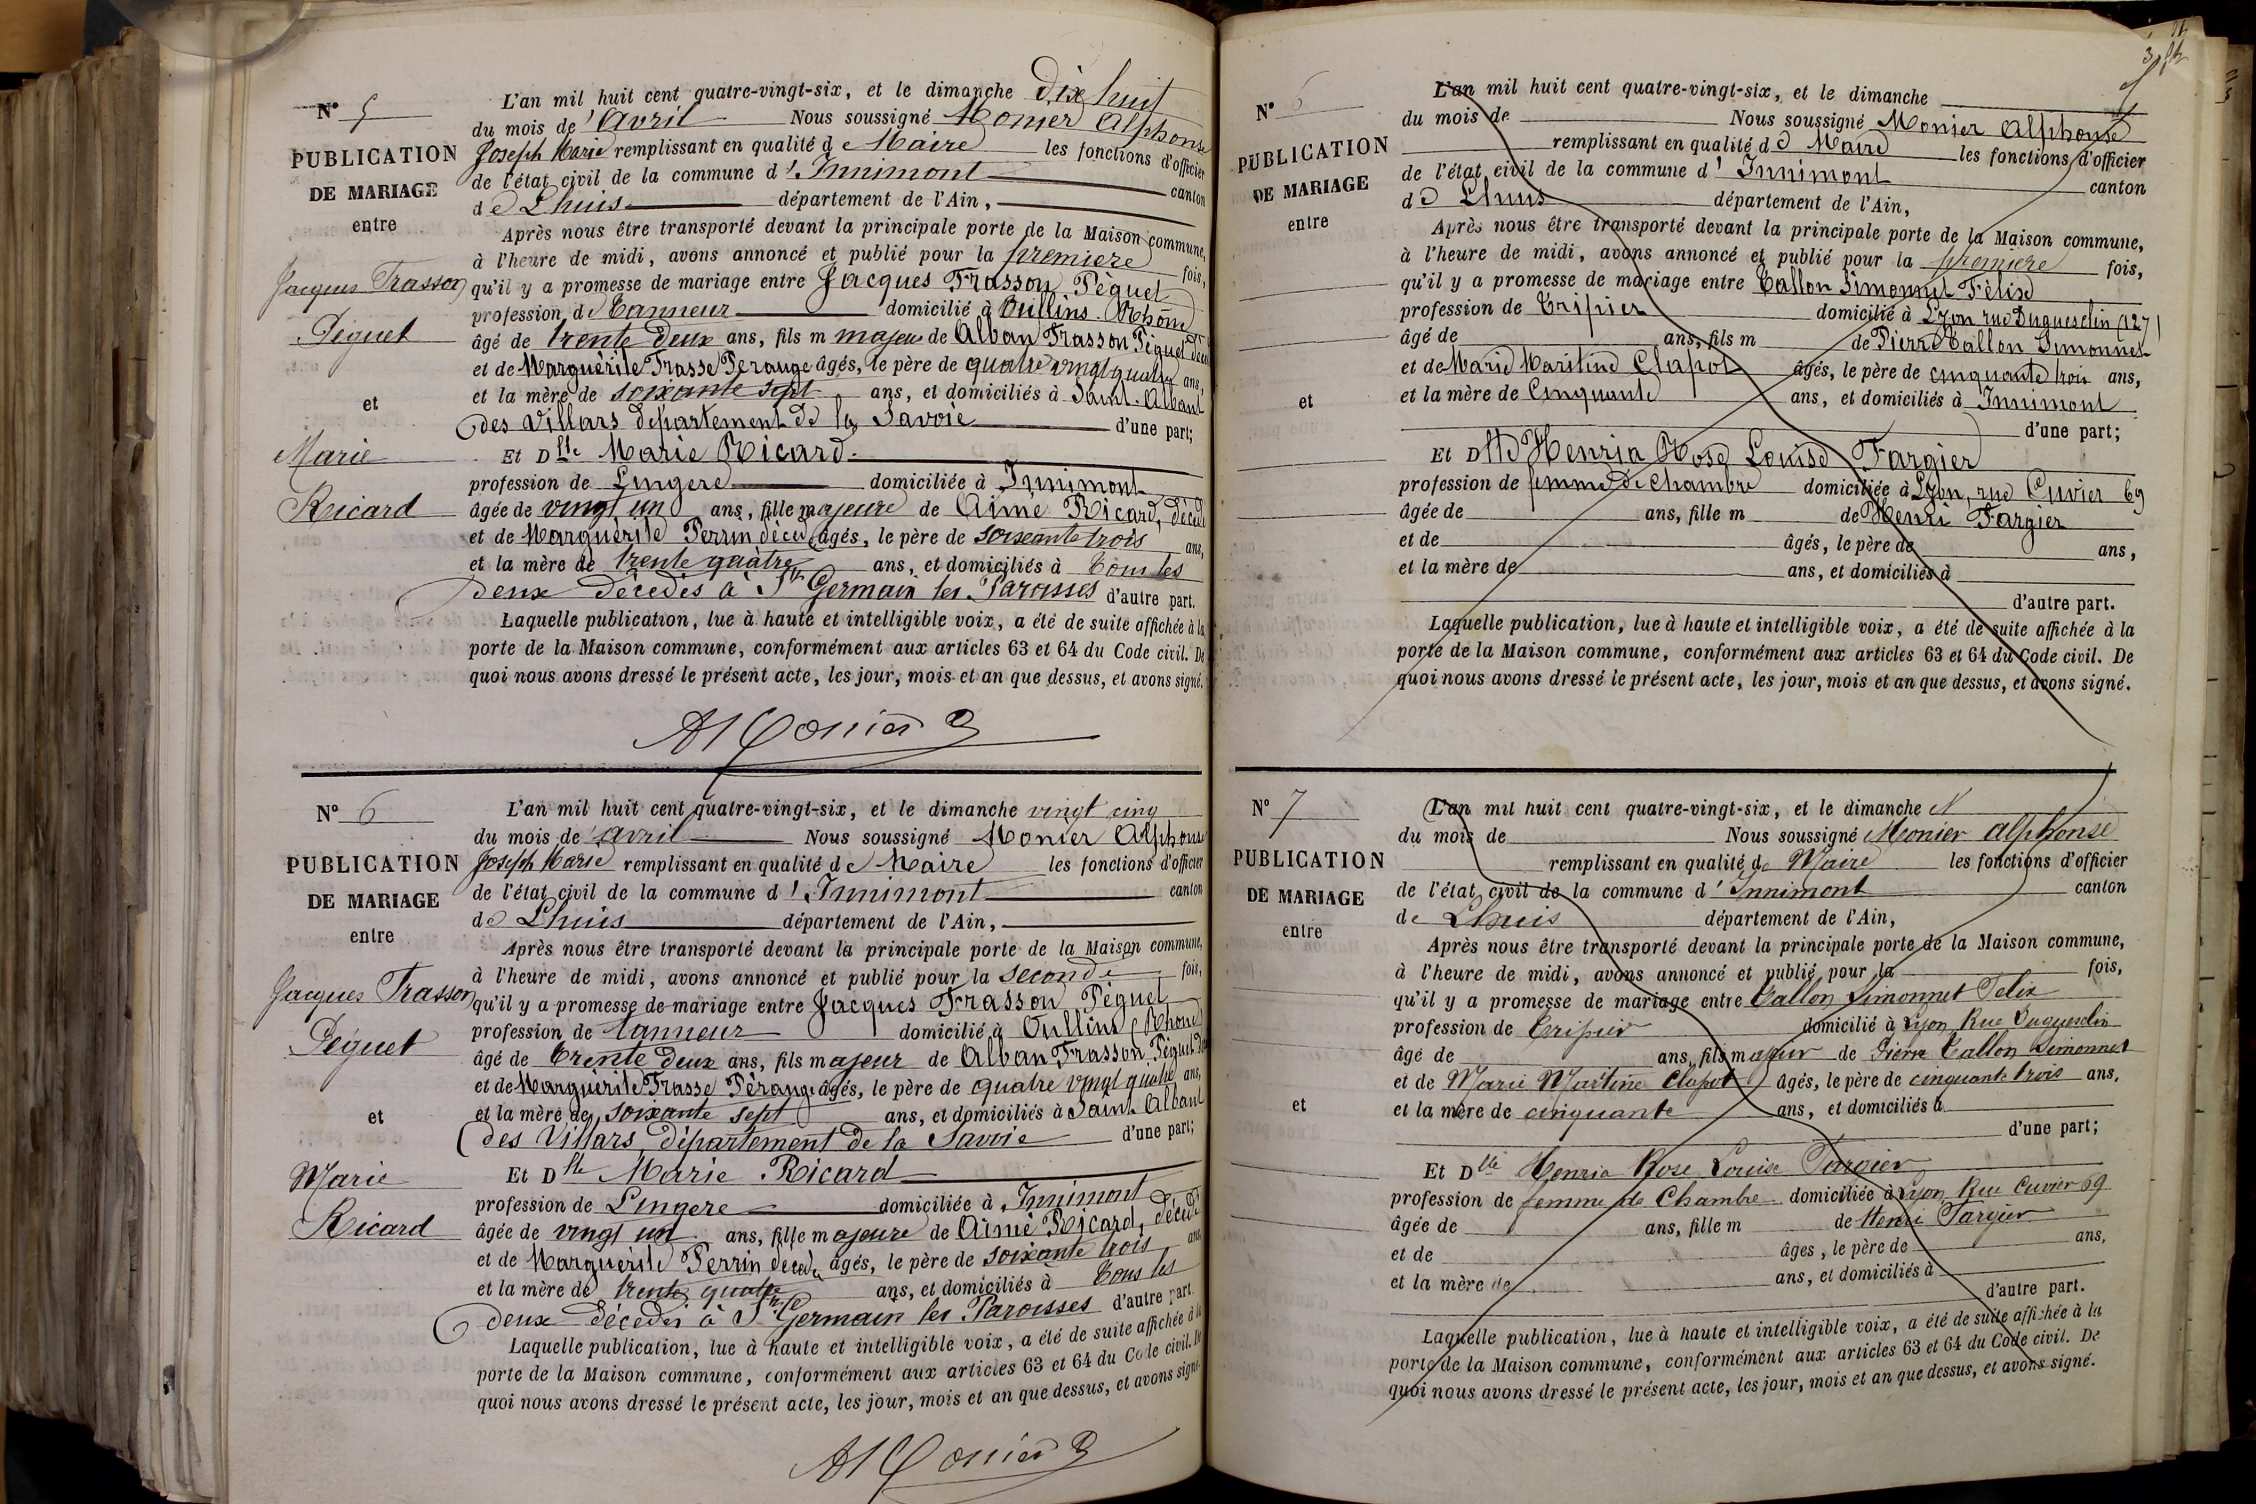 N° 5
PUBLICATION
DE MARIAGE
entre
Jacques Frasson
Péguet
et
Marie
Ricard
L'an mil huit cent quatre-vingt-six, et le dimanche Dix huit
du mois de Avril Nous soussigné Monier Alphonse
Joseph Marie remplissant en qualité de Maire les fonctions d'officier
de l'état civil de la commune d'Innimont canton
de Lhuis département de l'Ain,
Après nous être transporté devant la principale porte de la Maison commune,
à l'heure de midi, avons annoncé et publié pour la premiere fois,
qu'il y a promesse de mariage entre Jacques Frasson Péguet
profession de Tanneur domicilié à Oullins (Rhône)
âgé de trente deux ans, fils majeur de Alban Frasson Péguet
et de Marguérite Frasse Pérange âgés, le père de quatre vingt quatre ans,
et la mère de soixante sept ans, et domiciliés à Saint-Alban
des Villars département de la Savoie d'une part;
Et Dlle Marie Ricard
profession de Lingere domiciliée à Innimont
âgée de vingt un ans, fille majeure de Aimé Ricard, décédé
et de Marguérite Perrin décéd âgés, le père de soixante trois ans,
et la mère de trente quatre ans, et domiciliés à Tous les
deux décédés à St Germain les Paroisses d'autre part.
Laquelle publication, lue à haute et intelligible voix, a été de suite affichée à la
porte de la Maison commune, conformément aux articles 63 et 64 du Code civil. De
quoi nous avons dressé le présent acte, les jour, mois et an que dessus, et avons signé.
A Monier
N° 6
PUBLICATION
DE MARIAGE
entre
Jacques Frasson
Péguet
et
Marie
Ricard
L'an mil huit cent quatre-vingt-six, et le dimanche vingt cinq
du mois de avril Nous soussigné Monier Alphonse
Joseph Marie remplissant en qualité de Maire les fonctions d'officier
de l'état civil de la commune d'Innimont canton
de Lhuis département de l'Ain,
Après nous être transporté devant la principale porte de la Maison commune,
à l'heure de midi, avons annoncé et publié pour la seconde fois,
qu'il y a promesse de mariage entre Jacques Frasson Péguet
profession de tanneur domicilié à Oullins (Rhône)
âgé de trente deux ans, fils majeur de Alban Frasson Péguet
et de Marguérite Frasse Pérange âgés, le père de quatre vingt quatre ans,
et la mère de soixante sept ans, et domiciliés à Saint Alban
des Villars, département de la Savoie d'une part;
Et Dlle Marie Ricard
profession de Lingere domiciliée à Innimont
âgée de vingt un ans, fille majeure de Aimé Ricard, décédé
et de Marguérite Perrin décéd âgés, le père de soixante trois ans,
et la mère de trente quatre ans, et domiciliés à Tous les
deux décédés à St Germain les Paroisses d'autre part.
Laquelle publication, lue à haute et intelligible voix, a été de suite affichée à la
porte de la Maison commune, conformément aux articles 63 et 64 du Code civil. De
quoi nous avons dressé le présent acte, les jour, mois et an que dessus, et avons signé.
A Monier
N° 6
PUBLICATION
DE MARIAGE
entre
et
L'an mil huit cent quatre-vingt-six, et le dimanche
du mois de Nous soussigné Monier Alphonse
remplissant en qualité de Maire les fonctions d'officier
de l'état civil de la commune d'Innimont canton
de Lhuis département de l'Ain,
Après nous être transporté devant la principale porte de la Maison commune,
à l'heure de midi, avons annoncé et publié pour la premiere fois,
qu'il y a promesse de mariage entre Tallon Simonnet Félix
profession de Tripier domicilié à Lyon rue Duguesclin (127)
âgé de ans, fils m de Pierre Tallon Simonnet
et de Marie Maritine Clapot âgés, le père de cinquante trois ans,
et la mère de Cinquante ans, et domiciliés à Innimont
d'une part;
Et Dlle Henria Rose Louise Fargier
profession de femme de chambre domiciliée à Lyon, rue Cuvier 69
âgée de ans, fille m de Henri Fargier
et de âgés, le père de ans,
et la mère de ans, et domiciliés à
d'autre part.
Laquelle publication, lue à haute et intelligible voix, a été de suite affichée à la
porte de la Maison commune, conformément aux articles 63 et 64 du Code civil. De
quoi nous avons dressé le présent acte, les jour, mois et an que dessus, et avons signé.
N° 7
PUBLICATION
DE MARIAGE
entre
et
L'an mil huit cent quatre-vingt-six, et le dimanche
du mois de Nous soussigné Monier alphonse
remplissant en qualité de Maire les fonctions d'officier
de l'état civil de la commune d'Innimont canton
de Lhuis département de l'Ain,
Après nous être transporté devant la principale porte de la Maison commune,
à l'heure de midi, avons annoncé et publié pour la fois,
qu'il y a promesse de mariage entre Tallon Simonnet Felix
profession de Tripier domicilié à Lyon Rue Duguesclin
âgé de ans, fils majeur de Pierre Tallon Simonnet
et de Marie Martine Clapot âgés, le père de cinquante trois ans,
et la mère de cinquante ans, et domiciliés à
d'une part;
Et Dlle Henria Rose Louise Fargier
profession de femme de Chambre domiciliée à Lyon Rue Cuvier 69
âgée de ans, fille m de Henri Fargier
et de âges, le père de ans,
et la mère de ans, et domiciliés à
d'autre part.
Laquelle publication, lue à haute et intelligible voix, a été de suite affichée à la
porte de la Maison commune, conformément aux articles 63 et 64 du Code civil. De
quoi nous avons dressé le présent acte, les jour, mois et an que dessus, et avons signé.